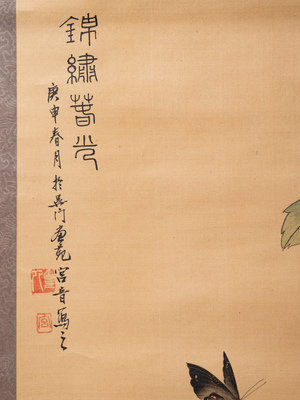 錦繡春光
庚申春月於吳门画苑宮音寫之